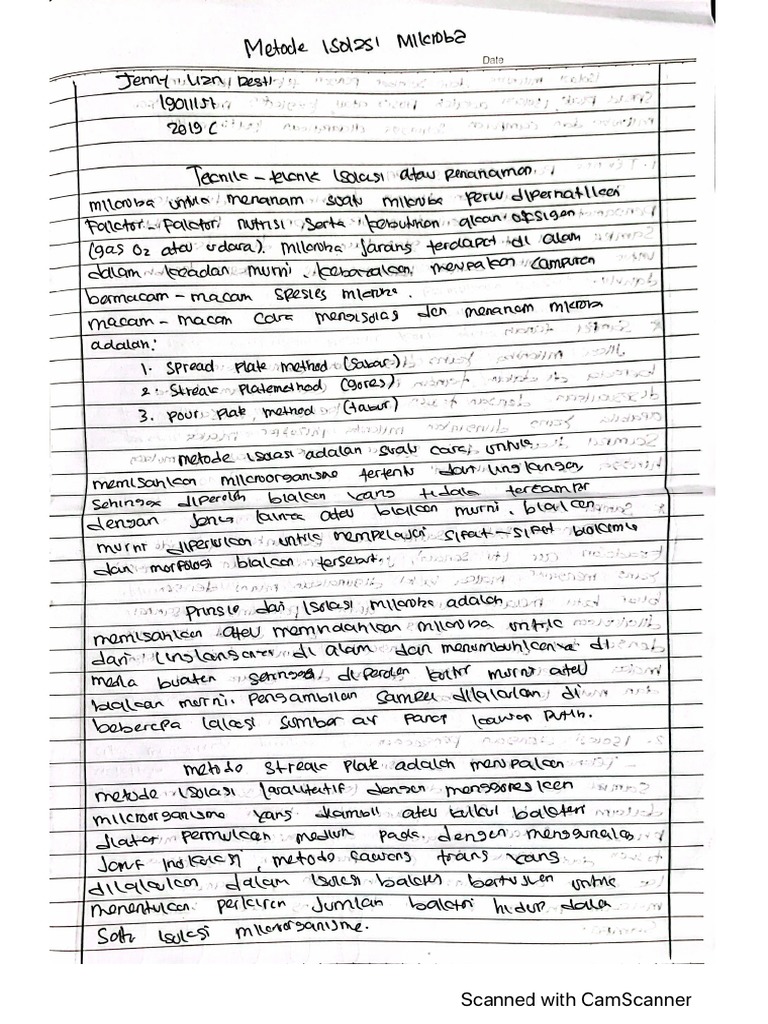 Metode Isolasi Mikroba
Date
Jenny Lian Desti
2019 C
Tecnik - teknik Isolasi atau penanaman.
mikroba untuk menanam suatu mikroba perlu diperhatikan
Faktor - Faktor nutrisi serta kebutuhan akan oksigen
(gas O2 atau udara). Mikroba jarang terdapat di alam
dalam keadan murni. kebanyakan merupakan campuran
bermacam - macam spesies mikroba.
macam - macam cara mengisolasi dan menanam mikroba
adalah:
1. Spread plate method (sabar)
2. Streak platemethod (gores)
3. pour plate method (tabur)
metode isolasi adalah suatu cara untuk
memisahkan mikroorganisme tertentu dari lingkungan,
sehingga diperoleh biakan yang tidak tercampur
dengan jenis lainnya atau biakan murni. biakan
murni diperlukan untuk mempelajari sifat - sifat biokimia
dan morfologi biakan tersebut.
Prinsip dari Isolasi mikroba adalah
memisahkan atau memindahkan mikroba untuk
dari lingkungannya di alam dan menumbuhkannya di
media buatan sehingga diperoleh kultur murni atau
biakan murni. Pengambilan sampel dilakukan di
beberapa lokasi sumber air panas kawah putih.
metode streak plate adalah merupakan
metode isolasi kualitatif dengan menggoreskan
mikroorganisme yang diambil atau bakteri
diatas permukaan medium padat dengan menggunakan
Jarum inokulasi, metode yang
dilakukan dalam isolasi bakteri bertujuan untuk
menentukan perkiraan jumlah bakteri hidup pada
isolasi mikroorganisme.
Scanned with CamScanner